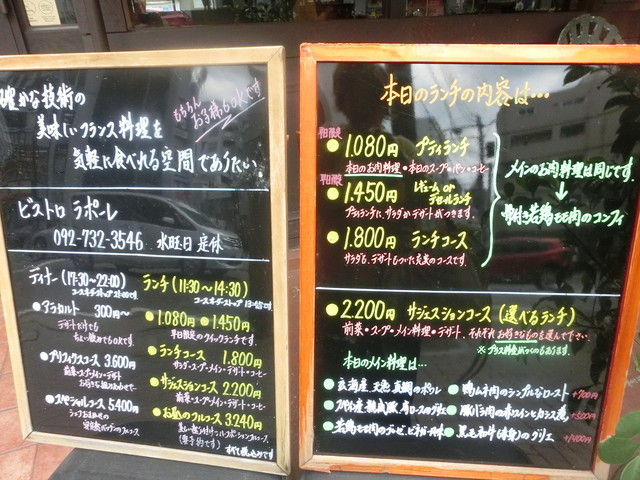 確かな技術の
美味しいフランス料理を
気軽に食べれる空間でありたい
もちろん
お子様もOKです
ビストロ ラポーレ
092-732-3546 水曜日 定休
ディナー(17:30~22:00)
アラカルト 300円~
デザートだけでも
ちょい飲みでもOKです。
プリフィックスコース 3.600円
前菜・スープ・メイン・デザート
お好きな組み合わせで…
スペシャルコース 5.400円
シェフおまかせの
ランチ(11:30~14:30)
1.080円 1.450円
平日限定のクイックランチです。
ランチコース 1.800円
サラダ・スープ・メイン・デザート・コーヒー
サジェスションコース 2.200円
前菜・スープ・メイン・デザート・コーヒー
お昼のフルコース 3.240円
(要予約です)
すべて税込みです
本日のランチの内容は…
平日限定
1.080円 プティランチ
本日のお肉料理・本日のスープ・パン・コーヒー
平日限定
1.450円 レギューム or
デセールランチ
プティランチに、サラダかデザートがつきます。
1.800円 ランチコース
サラダも、デザートもついた充実のコースです。
メインのお肉料理は同じです。
↓
骨付き若鶏モモ肉のコンフィ
2.200円 サジェスションコース (選べるランチ)
前菜・スープ・メイン料理・デザート、それぞれお好きなものを選んで下さい。
※プラス料金がつくのもあります。
本日のメイン料理は…
玄海産 天然 真鯛のポワレ
鴨ムネ肉のシンプルなロースト +700円
豚バラ肉の赤ワインとカシス煮 +500円
若鶏モモ肉の
黒毛和牛(赤身)のグリエ